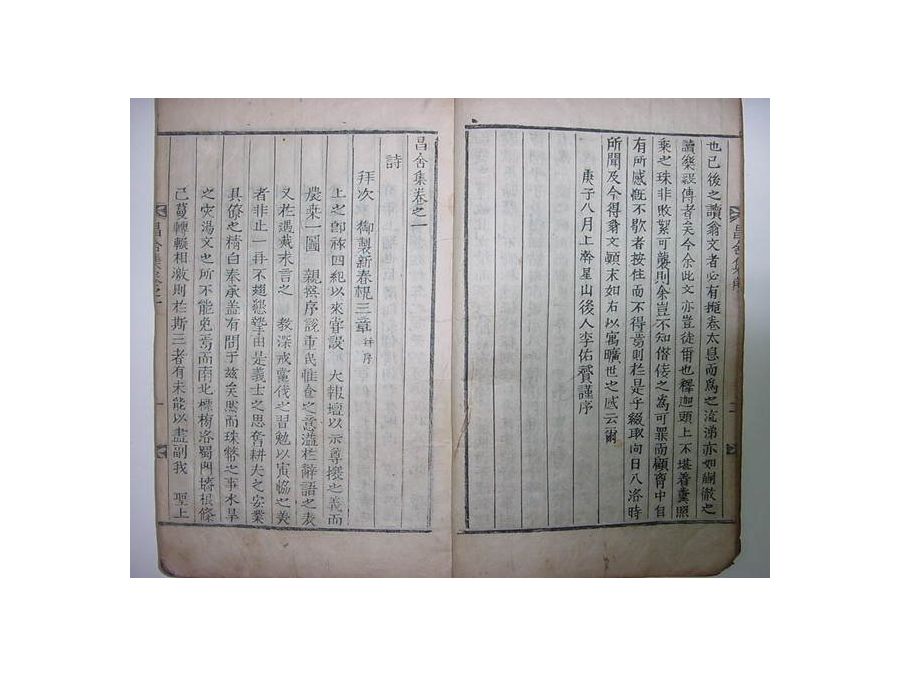 也已後之讀翁文者必有掩卷太息而爲之流涕亦如蒯徹之
讀樂毅傳者矣今余此文亦豈徒爾也釋迦頭上不堪着糞照
乘之珠非敗絮可襲則余豈不知僭倰之爲可罪而顧胷中自
有所感慨不歇者按住而不得焉則於是乎綴取向日八洛時
所聞及今得翁文顚末如右以寓曠世之感云爾
庚子八月上澣星山後人李佑贇謹序
昌舍集序
昌舍集卷之一
詩
拜次 御製新春輥三章 幷序
上之卽祚四紀以來嘗設 大報壇以示尊攘之義而
農桒一圖 親撰序該重民惟食之意溢於辭語之表
又於遇烖求言之 敎深戒黨伐之習勉以寅協之美
者非止一再不趐懇摯由是義士之思奮耕夫之安業
具僚之精白奉承盖有間于玆矣然而珠幣之事水旱
之灾湯文之所不能免焉而南北標榜洛蜀門墻根條
己蔓轉輾相激則於斯三者有未能以盡副我 聖上
昌舍集卷之一